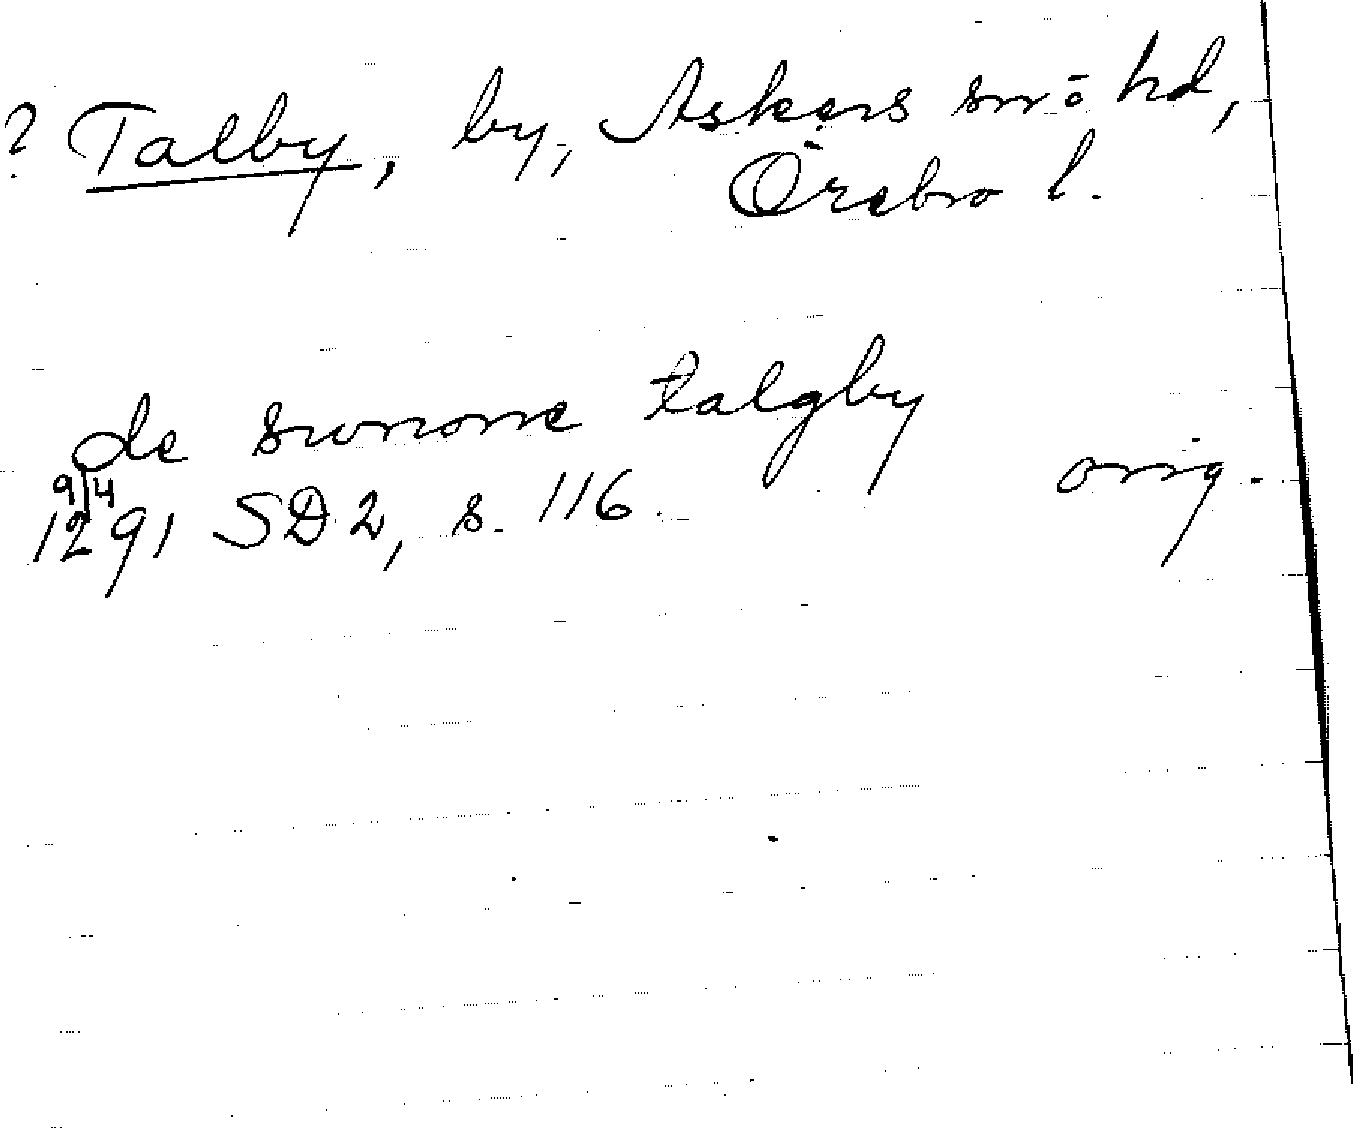 ? Talby, by, Askers sn o hd,
Örebro l.
de suonome talgby
9/4
1291 SD2, s. 116. orig.